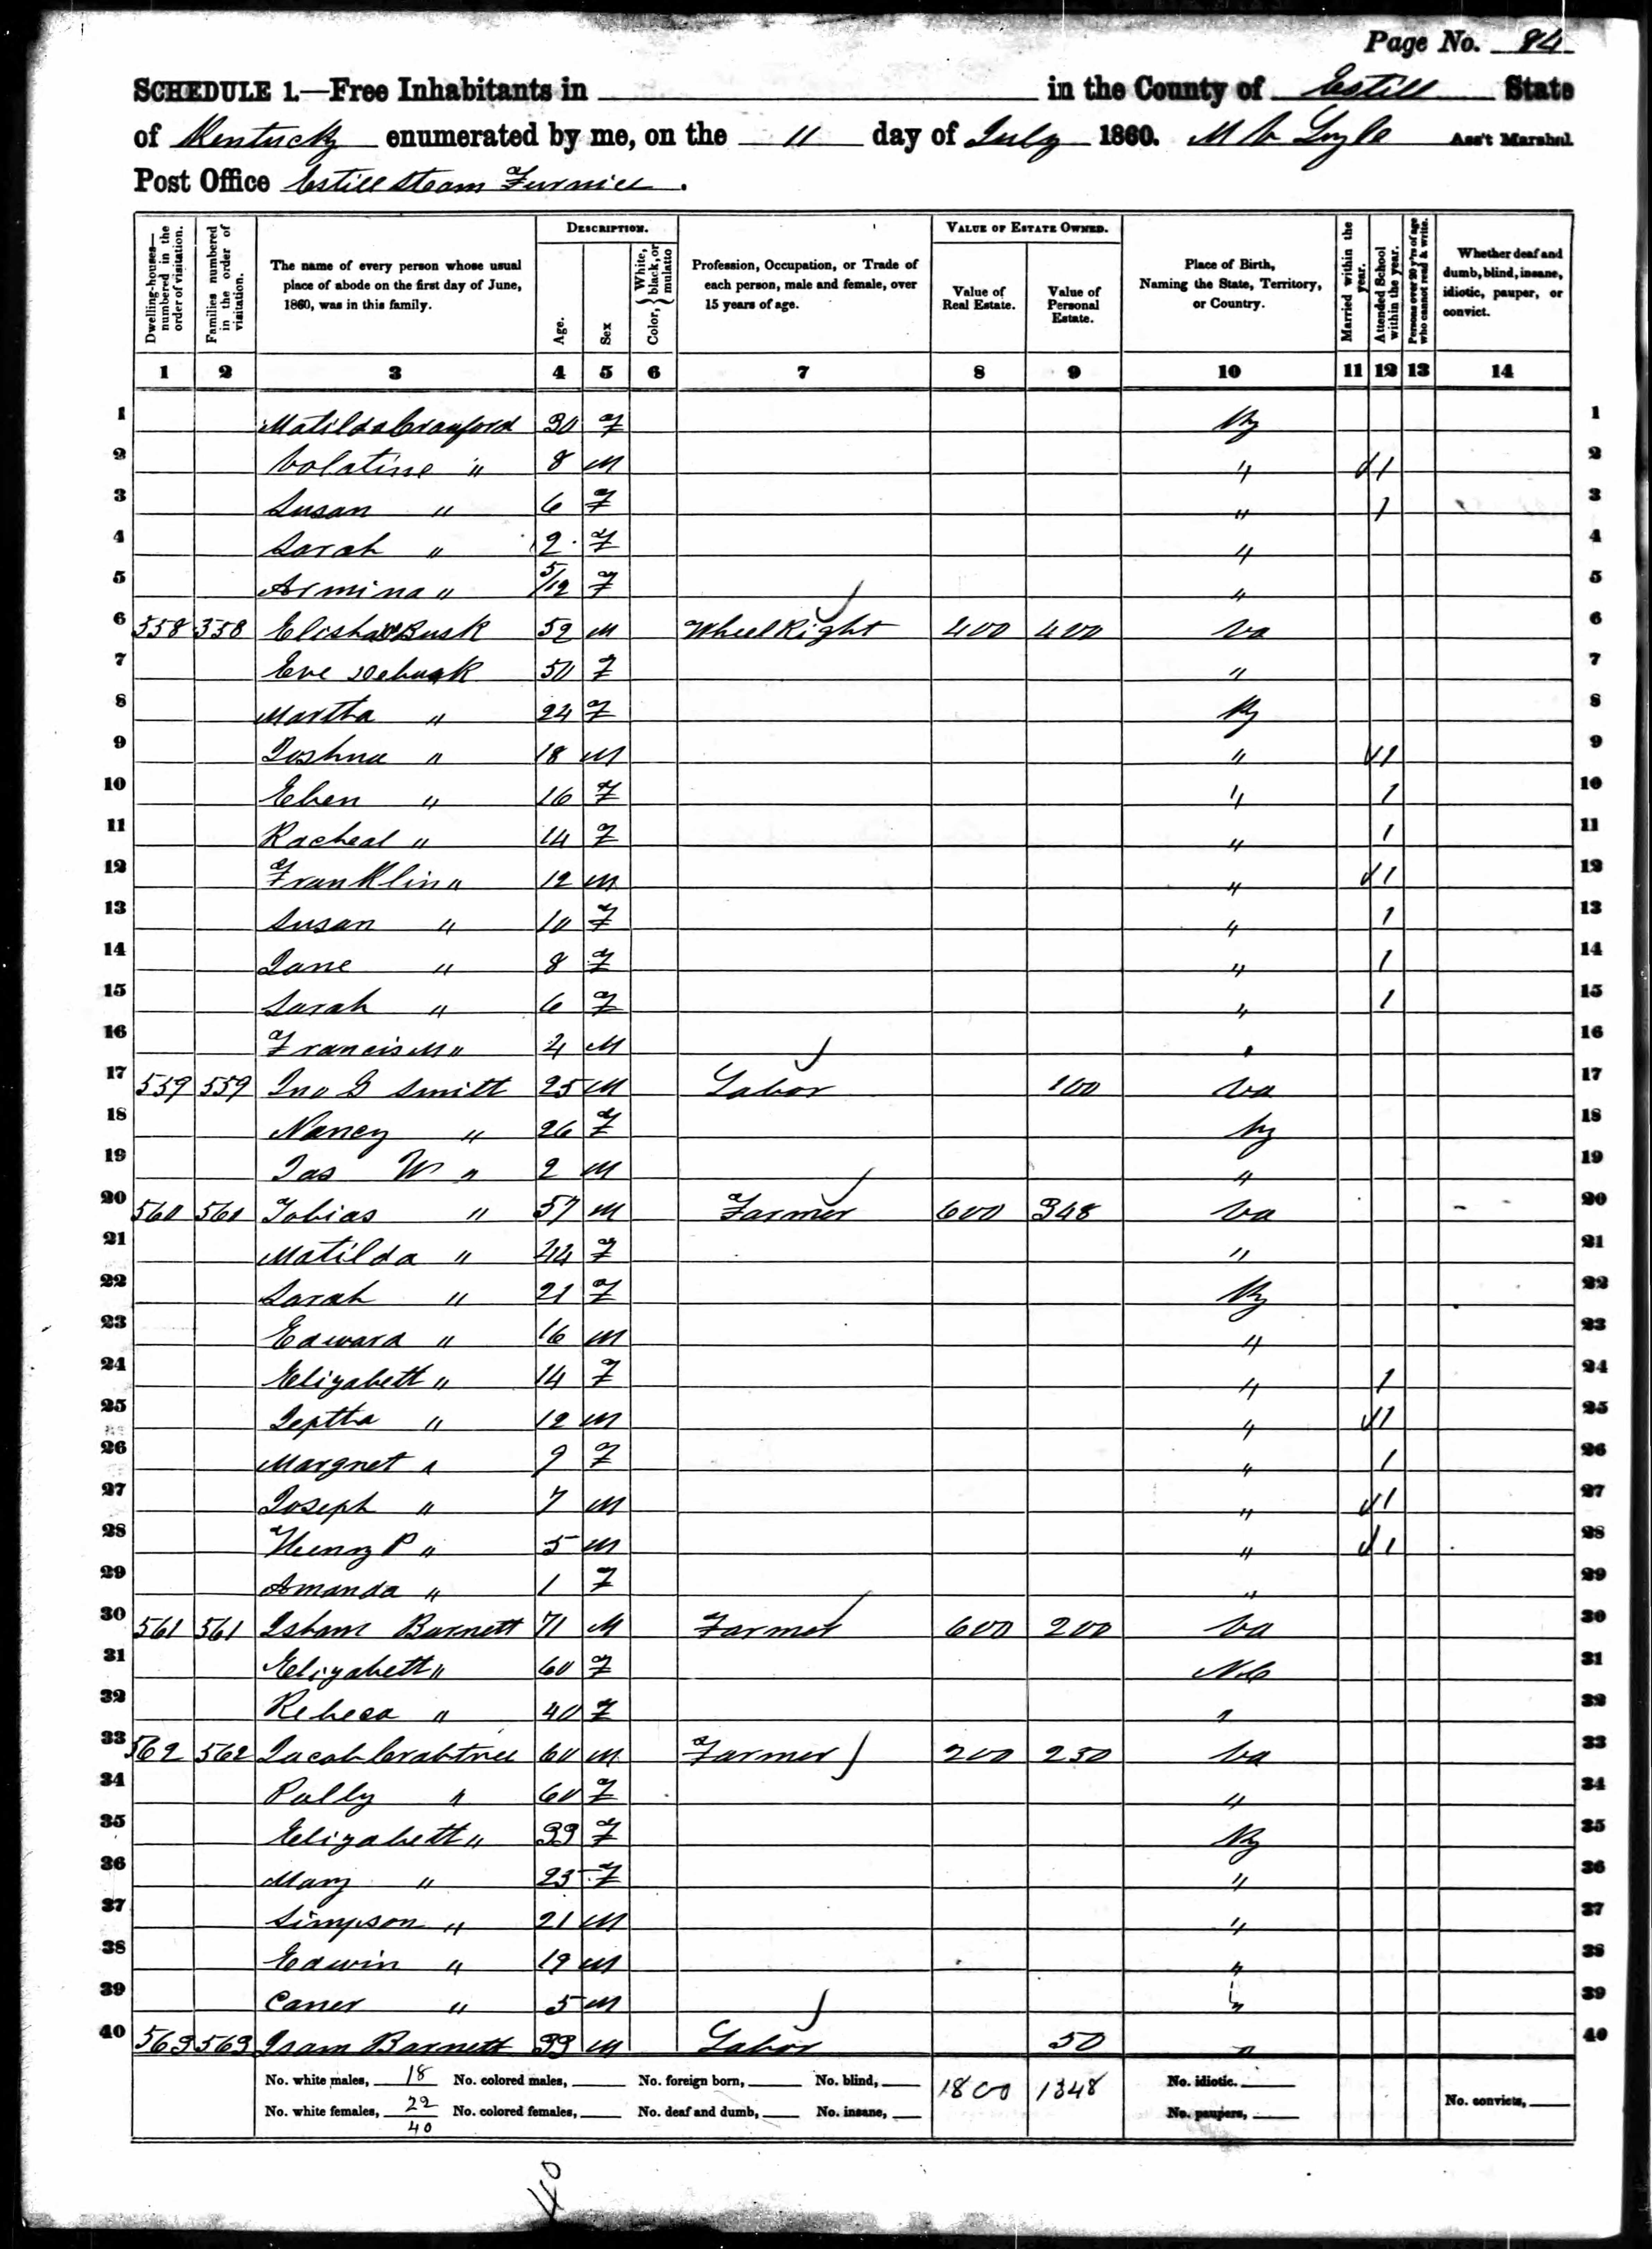 Page No. 84
SCHEDULE 1.—Free Inhabitants in in the County of Estill State
of Kentucky enumerated by me, on the 11 day of July 1860. Ass't Marshal
Post Office Estill Steam Furnice.
Dwelling-houses—numbered in the order of visitation.
Families numbered in the order of visitation.
The name of every person whose usual place of abode on the first day of June, 1860, was in this family.
DESCRIPTION.
Age.
Sex
Color, { White, black, or mulatto
Profession, Occupation, or Trade of each person, male and female, over 15 years of age.
VALUE OF ESTATE OWNED.
Value of Real Estate.
Value of Personal Estate.
Place of Birth, Naming the State, Territory, or Country.
Married within the year.
Attended School within the year.
Persons over 20 y'rs of age who cannot read & write.
Whether deaf and dumb, blind, insane, idiotic, pauper, or convict.
1 2 3 4 5 6 7 8 9 10 11 12 13 14
1 Matilda Crawford 30 F Ky 1
2 Volatine " 8 M " / 1 2
3 Susan " 6 F " 1 3
4 Sarah " 2 F " 4
5 Armina " 5/12 F " 5
6 558 358 Elisha DBusk 52 M Wheel Right 400 400 Va 6
7 Eve Debusk 50 F " 7
8 Martha " 24 F Ky 8
9 Joshua " 18 M " / 1 9
10 Ellen " 16 F " 1 10
11 Racheal " 14 F " 1 11
12 Franklin " 12 M " / 1 12
13 Susan " 10 F " 1 13
14 Jane " 8 F " 1 14
15 Sarah " 6 F " 1 15
16 Francis M " 4 M " 16
17 559 559 Jno G Smith 25 M Labor 100 Va 17
18 Nancy " 26 F Ky 18
19 Jas W " 2 M " 19
20 560 560 Tobias " 57 M Farmer 600 348 Va 20
21 Matilda " 44 F " 21
22 Sarah " 21 F Ky 22
23 Edward " 16 M " 23
24 Elizabeth " 14 F " 1 24
25 Jeptha " 12 M " / 1 25
26 Margret " 9 F " 1 26
27 Joseph " 7 M " / 1 27
28 Henry P " 5 M " / 1 28
29 Amanda " 1 F " 29
30 561 561 Isham Barnett 71 M Farmer 600 200 Va 30
31 Elizabeth " 60 F N.C 31
32 Rebeca " 40 F " 32
33 562 562 Jacob Crabtree 60 M Farmer 200 250 Va 33
34 Polly " 60 F " 34
35 Elizabeth " 33 F Ky 35
36 Mary " 25 F " 36
37 Simpson " 21 M " 37
38 Edwin " 19 M " 38
39 Caner " 5 M " 39
40 563 563 Isam Barnett 33 M Labor 50 " 40
No. white males, 18 No. colored males, No. foreign born, No. blind, 1800 1348 No. idiotic.
No. white females, 22 No. colored females, No. deaf and dumb, No. insane, No. paupers, No. convicts,
40
40